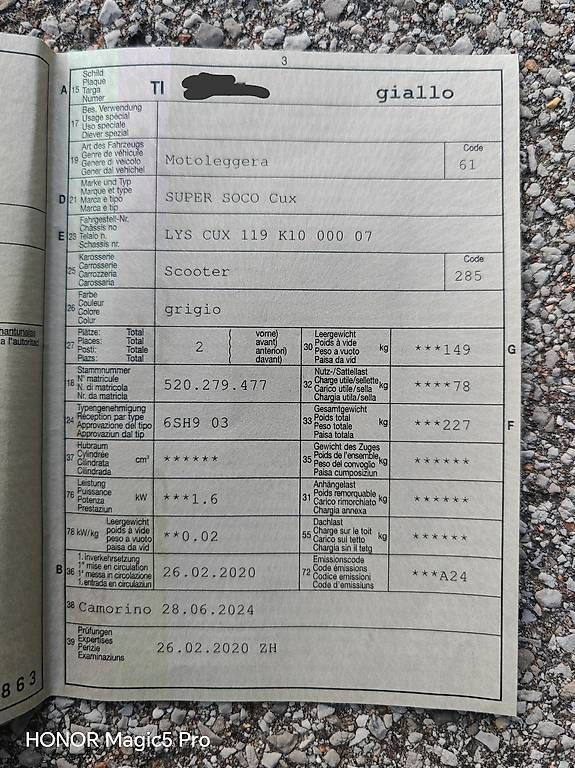 3
A 15 Schild
Plaque
Targa
Numer
TI
giallo
17 Bes. Verwendung
Usage spécial
Uso speciale
Diever spezial
19 Art des Fahrzeugs
Genre de véhicule
Genere di veicolo
Gener dal vehichel
Motoleggera
Code
61
D 21 Marke und Typ
Marque et type
Marca e tipo
Marca e tip
SUPER SOCO Cux
E 23 Fahrgestell-Nr.
Châssis no
Telaio n.
Schassis nr.
LYS CUX 119 K10 000 07
25 Karosserie
Carrosserie
Carrozzeria
Carossaria
Scooter
Code
285
26 Farbe
Couleur
Colore
Colur
grigio
27 Plätze: Total
Places: Total
Posti: Totale
Plazs: Total
2
vorne)
avant)
anteriori)
davant)
30 Leergewicht
Poids à vide
Peso a vuoto
Paisa da vid
kg
***149
G
18 Stammnummer
N° matricule
N. di matricola
Nr. da matricla
520.279.477
32 Nutz-/Sattellast
Charge utile/sellette
Carico utile/sella
Chargia utila/sella
kg
****78
24 Typengenehmigung
Réception par type
Approvazione del tipo
Approvaziun dal tip
6SH9 03
33 Gesamtgewicht
Poids total
Peso totale
Paisa totala
kg
***227
F
37 Hubraum
Cylindrée
Cilindrata
Cilindrada
cm³
******
35 Gewicht des Zuges
Poids de l'ensemble
Peso del convoglio
Paisa cumposiziun
kg
******
76 Leistung
Puissance
Potenza
Prestaziun
kW
***1.6
31 Anhängelast
Poids remorquable
Carico rimorchiato
Chargia annexa
kg
******
78 kW/kg Leergewicht
poids à vide
peso a vuoto
paisa da vid
**0.02
55 Dachlast
Charge sur le toit
Carico sul tetto
Chargia sin il tetg
kg
******
B 36 1. Inverkehrsetzung
1re mise en circulation
1a messa in circolazione
1. entrada en circulaziun
26.02.2020
72 Emissionscode
Code émissions
Codice emissioni
Code d'emissiuns
***A24
38 Camorino 28.06.2024
39 Prüfungen
Expertises
Perizie
Examinaziuns
26.02.2020 ZH
863
HONOR Magic5 Pro